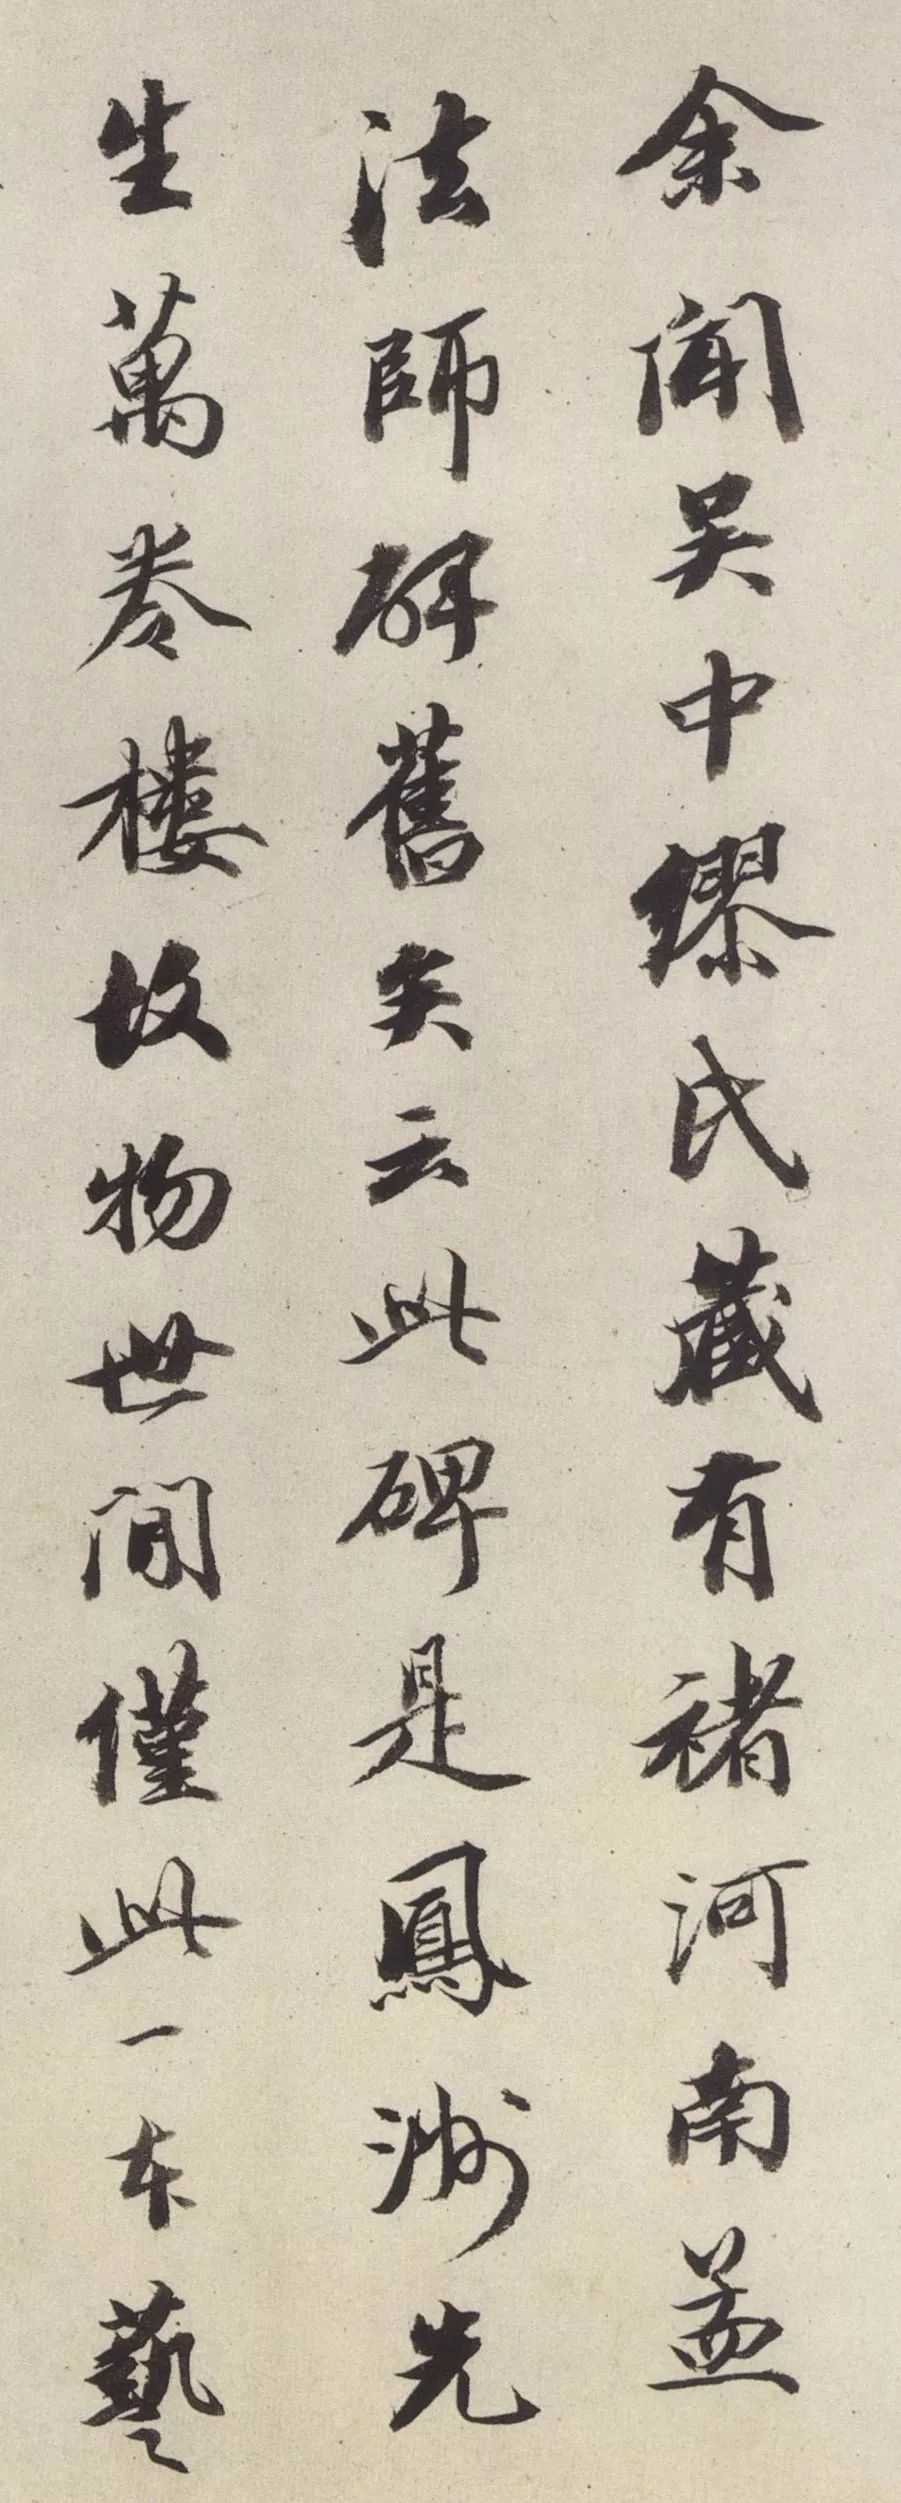 余聞吴中繆氏藏有褚河南孟
法師碑舊矣云此碑是鳳洲先
生萬卷樓故物世間僅此一本藝